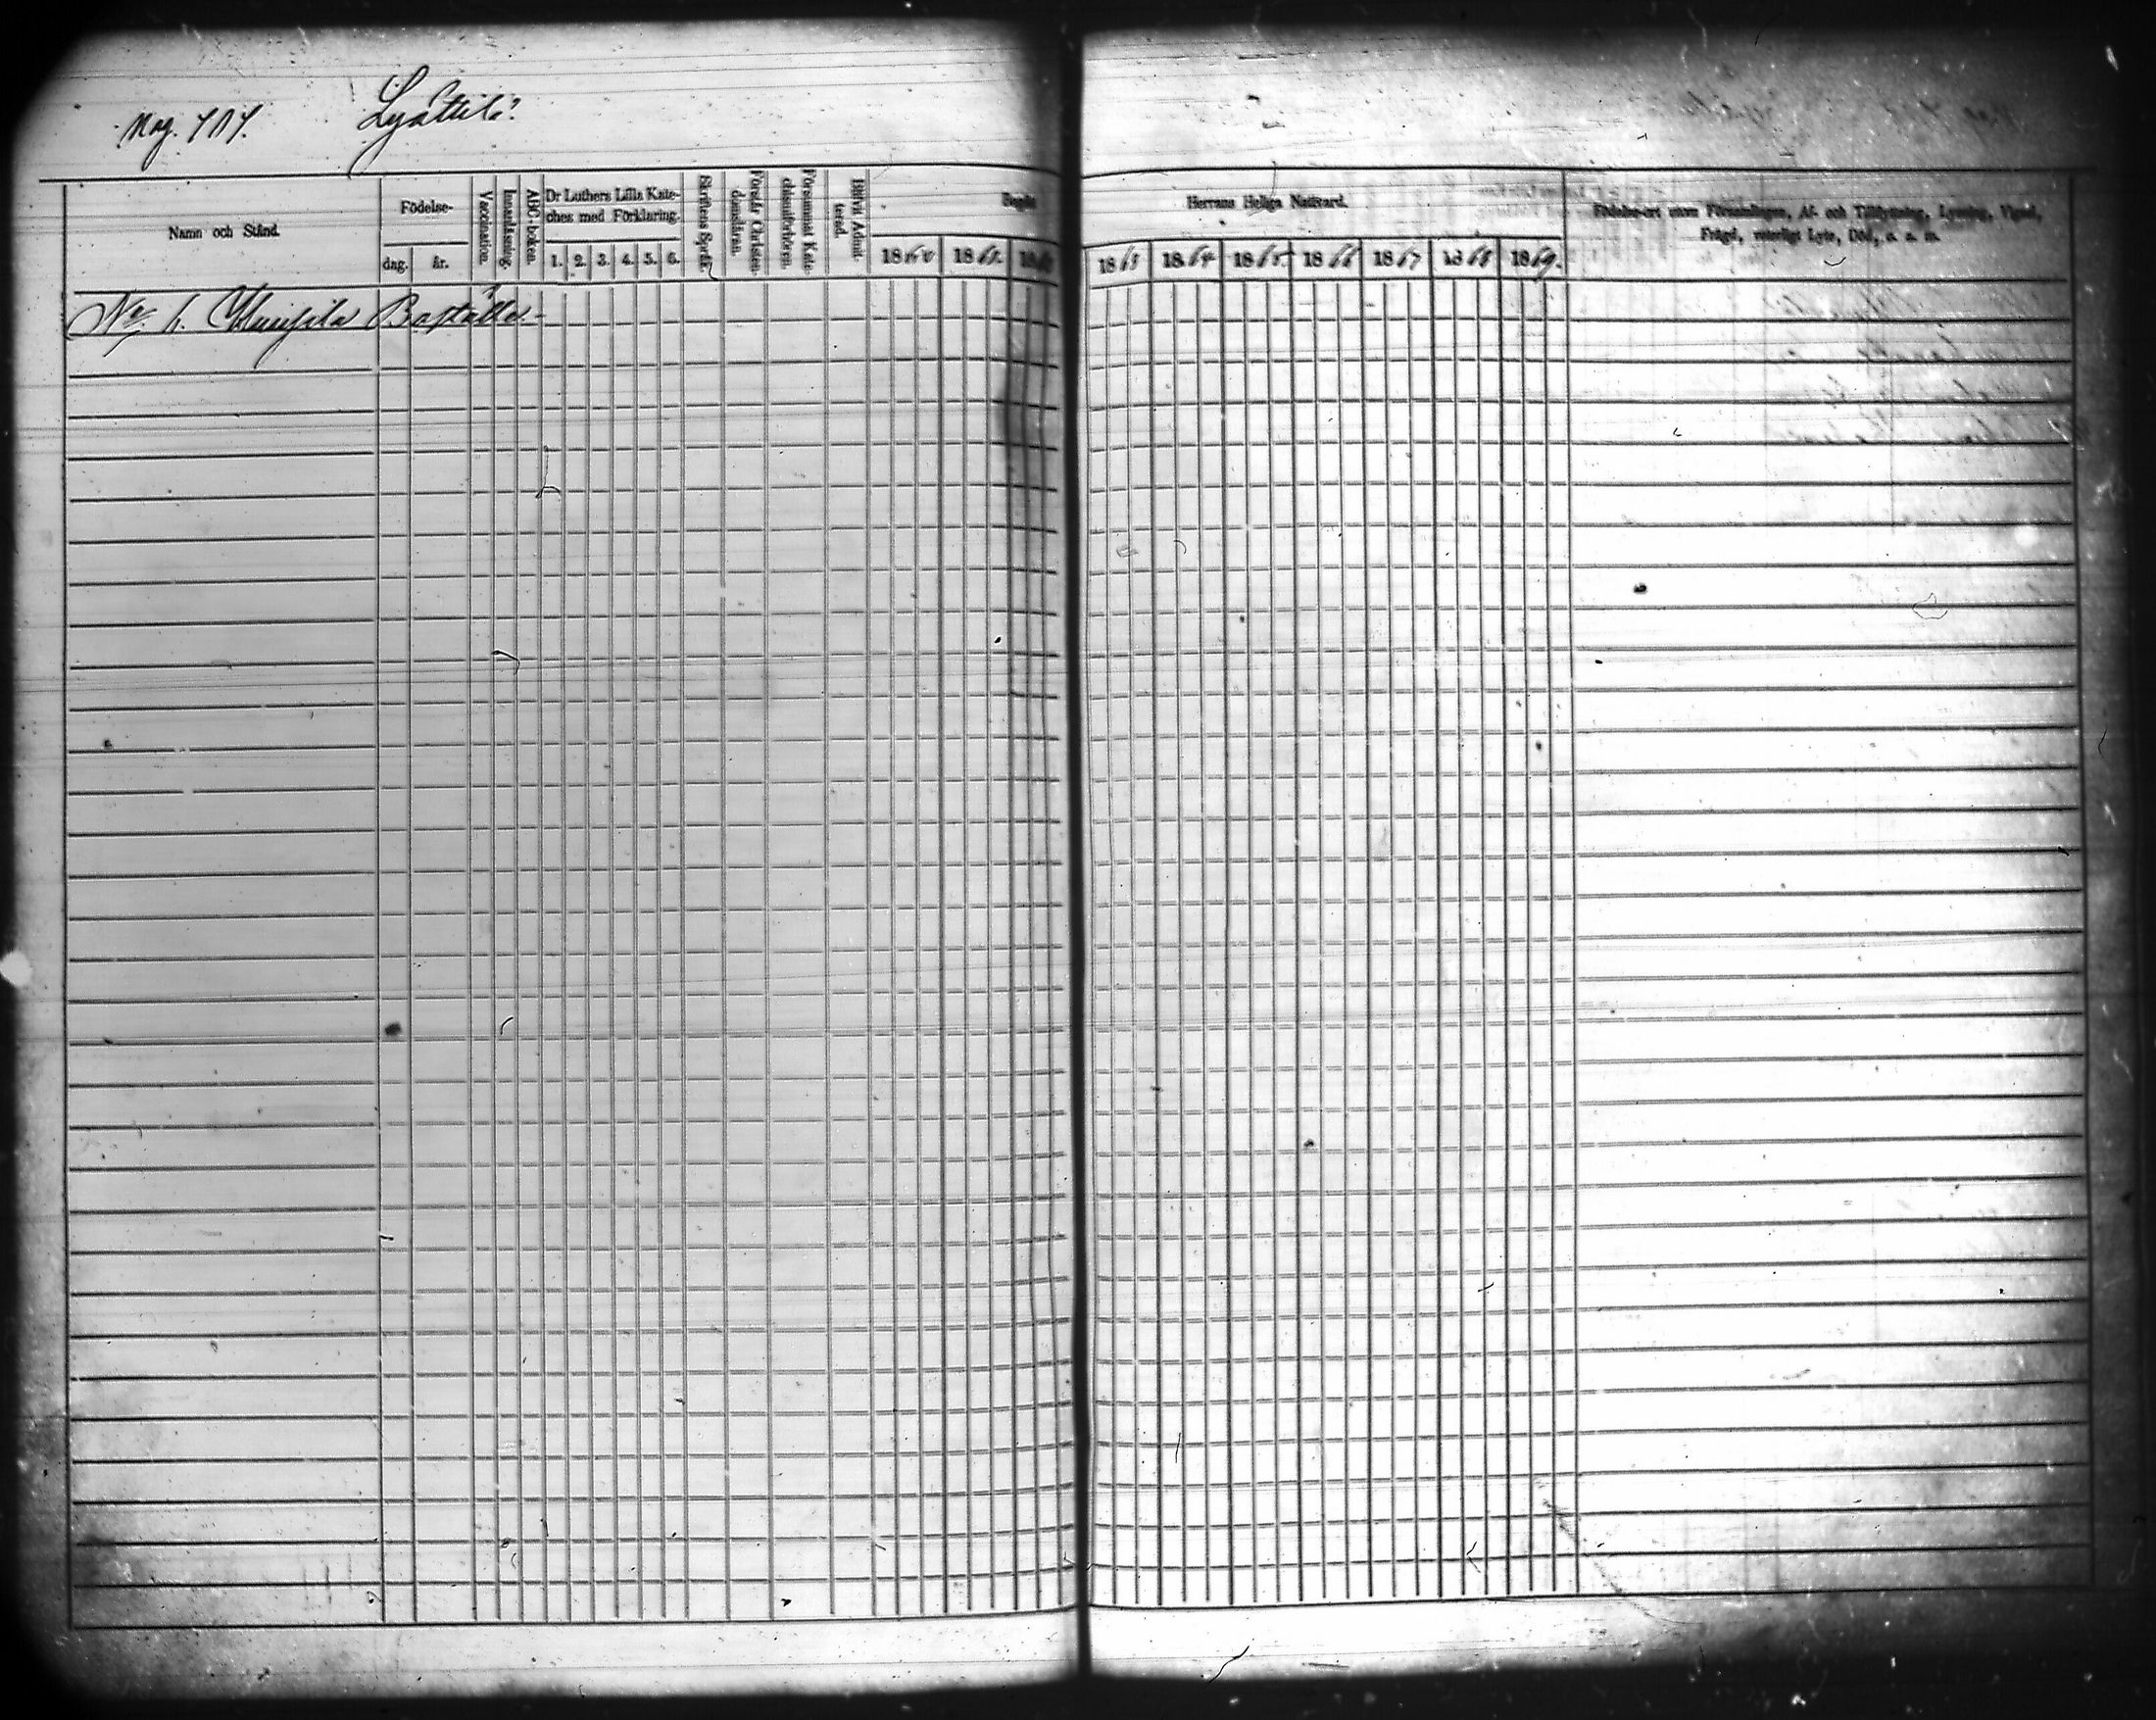 Pag. 717. Lyöttilä.
Namn och Stånd.
Födelse-
dag.
år.
Vaccination.
Innanläsning.
ABC-boken.
Dr Luthers Lilla Kate-
ches med Förklaring.
1. 2. 3. 4. 5. 6.
Skriftens Språk.
Förstår Christen-
domsläran.
Försummat Kate-
chismiförhören.
Blifvit Admit-
terad.
Begått
1860 1861 186
Herrans Heliga Nattvard.
1863 1864 1865 1866 1867 1868 1869.
Födelse-ort utom Församlingen, Af- och Tillflyttning, Lysning, Vigsel,
Frägd, naturligt Lyte, Död, o. s. m.
Boställe